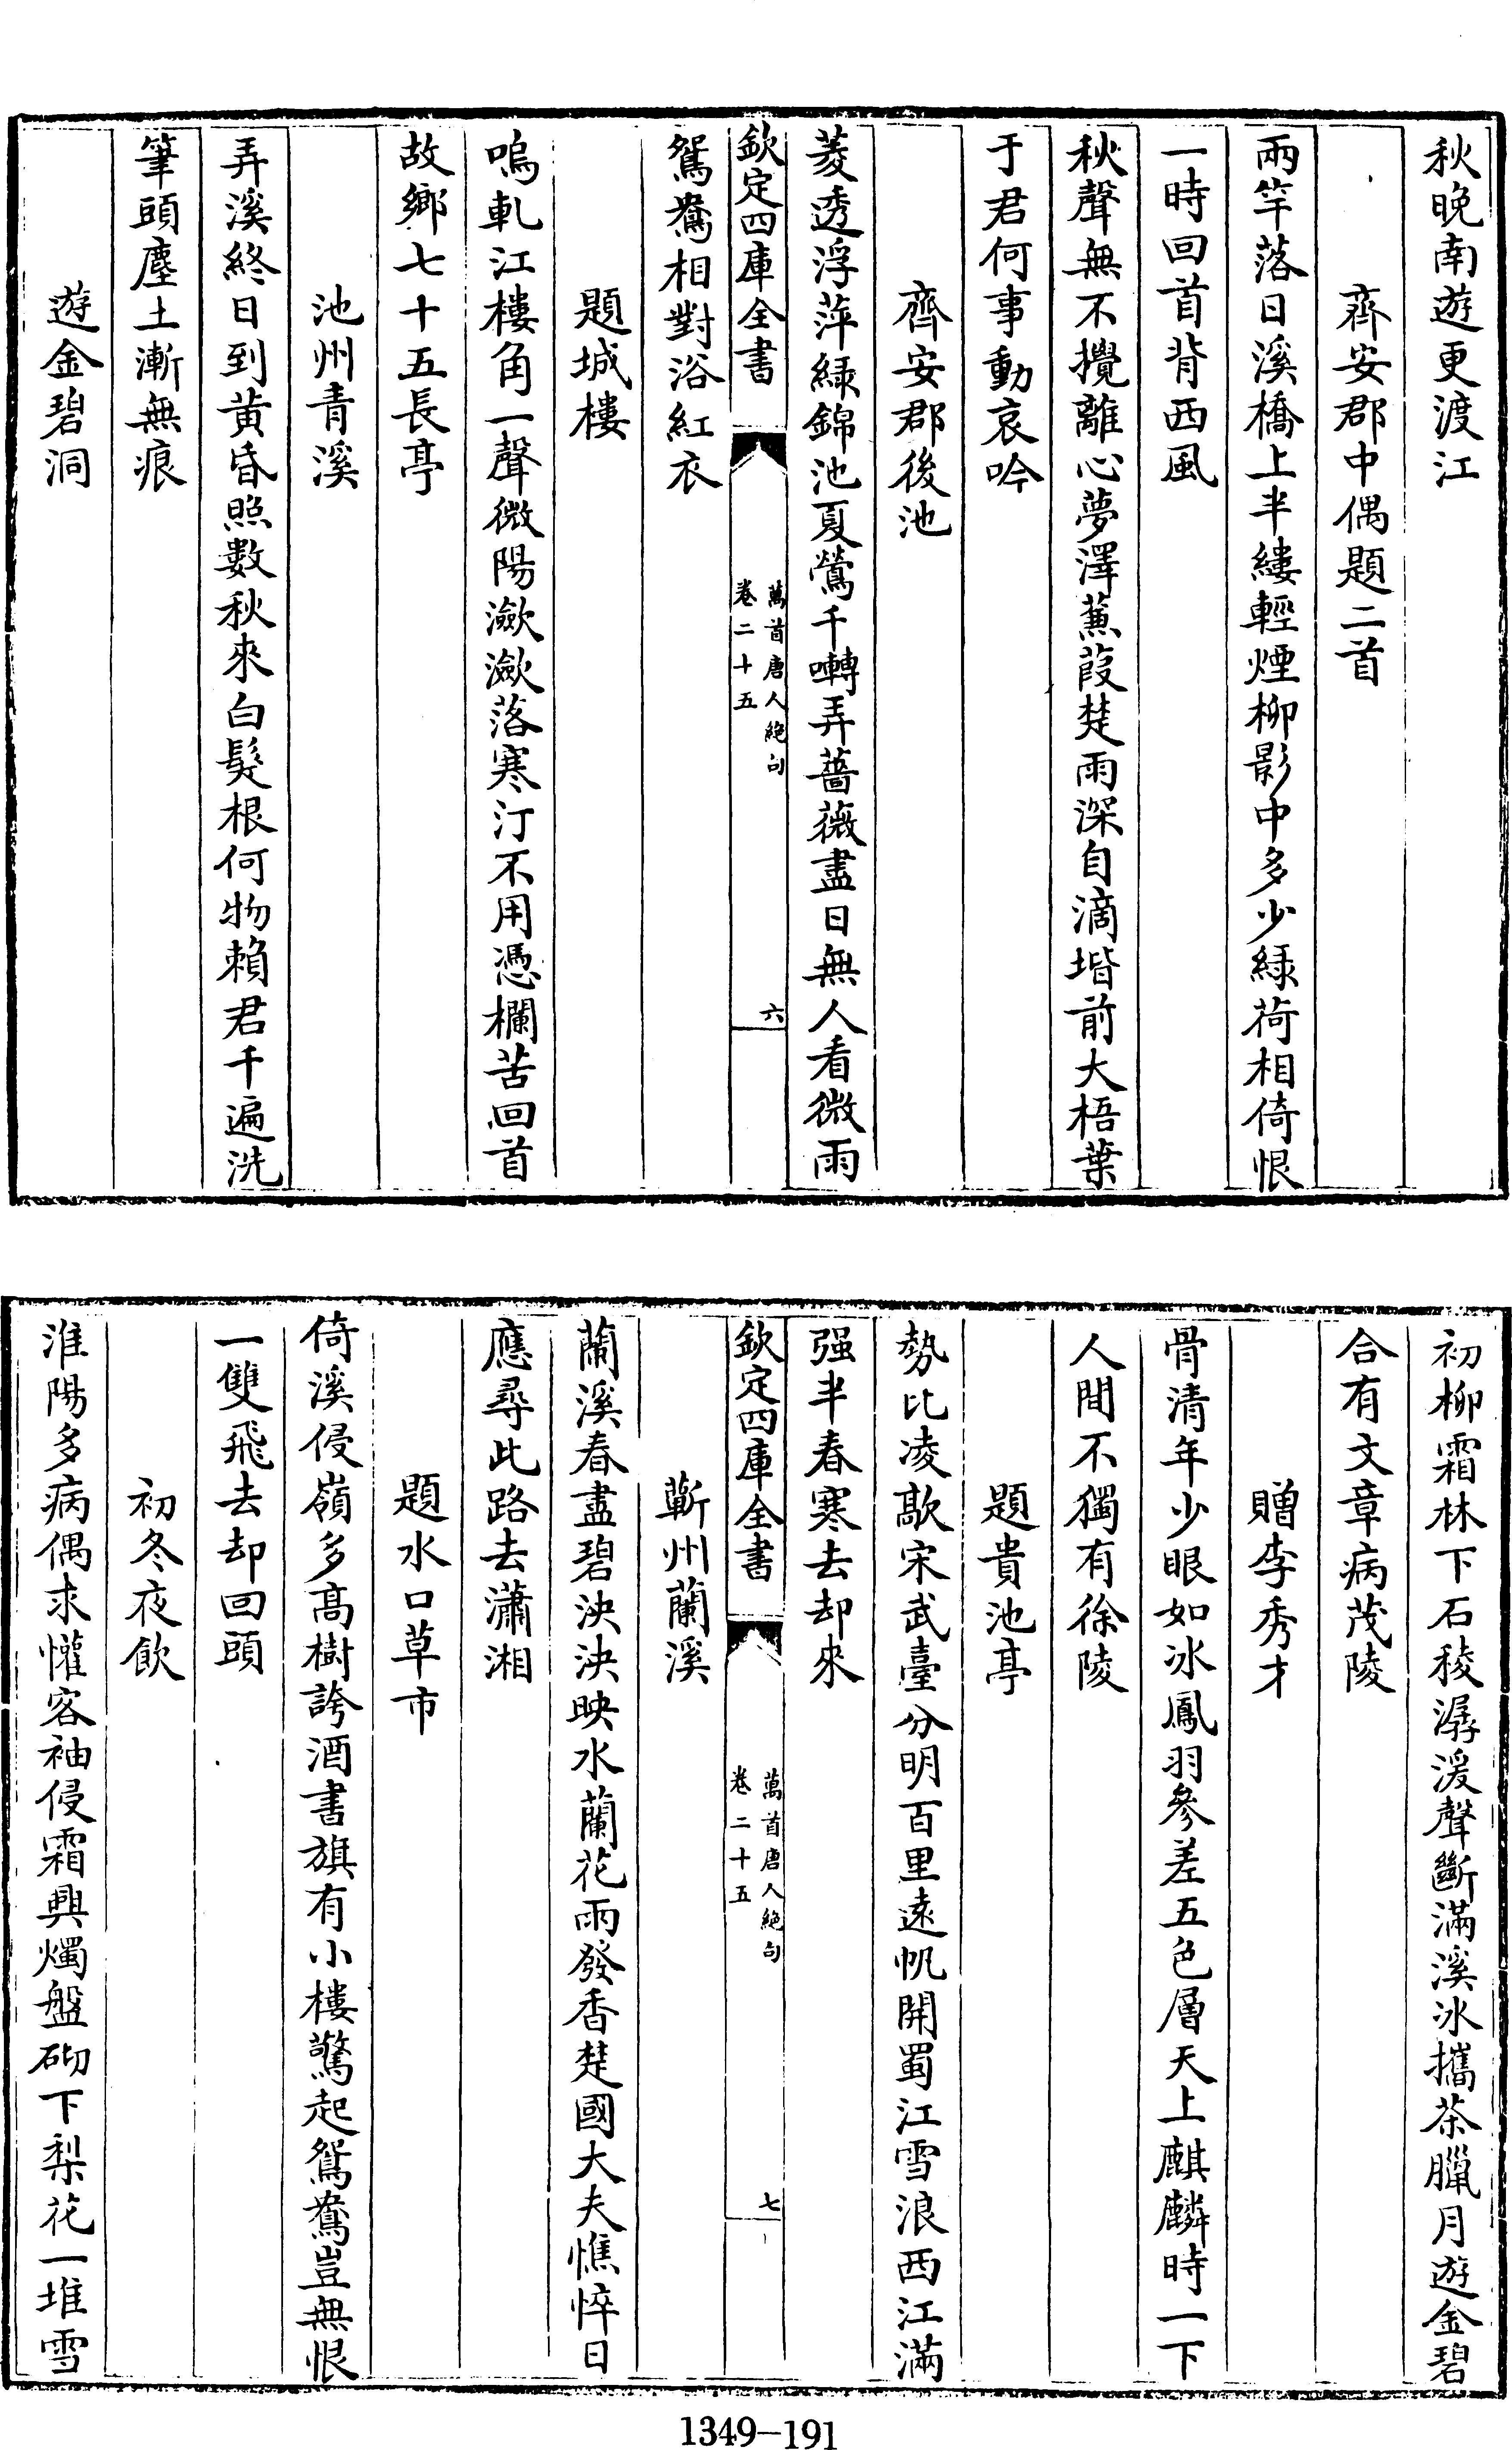 秋晚南遊更渡江
齊安郡中偶題二首
兩竿落日溪橋上半縷輕煙柳影中多少綠荷相倚恨
一時回首背西風
秋聲無不攪離心夢澤蒹葭楚雨深自滴堦前大梧葉
于君何事動哀吟
齊安郡後池
菱透浮萍綠錦池夏鶯千囀弄薔薇盡日無人看微雨
欽定四庫全書
萬首唐人絶句
卷二十五
六
鴛鴦相對浴紅衣
題城樓
嗚軋江樓角一聲微陽瀲瀲落寒汀不用憑欄苦回首
故鄉七十五長亭
池州青溪
弄溪終日到黃昏照數秋來白髮根何物賴君千遍洗
筆頭塵土漸無痕
遊金碧洞
初柳霜林下石稜潺湲聲斷滿溪冰攜茶臘月遊金碧
合有文章病茂陵
贈李秀才
骨清年少眼如冰鳳羽參差五色層天上麒麟時一下
人間不獨有徐陵
題貴池亭
勢比凌歊宋武臺分明百里遠帆開蜀江雪浪西江滿
强半春寒去却來
欽定四庫全書
萬首唐人絶句
卷二十五
七
蘄州蘭溪
蘭溪春盡碧泱泱映水蘭花雨發香楚國大夫憔悴日
應尋此路去瀟湘
題水口草市
倚溪侵嶺多高樹誇酒書旗有小樓驚起鴛鴦豈無恨
一雙飛去却回頭
初冬夜飲
淮陽多病偶求懽客袖侵霜興燭盤砌下梨花一堆雪
1349-191